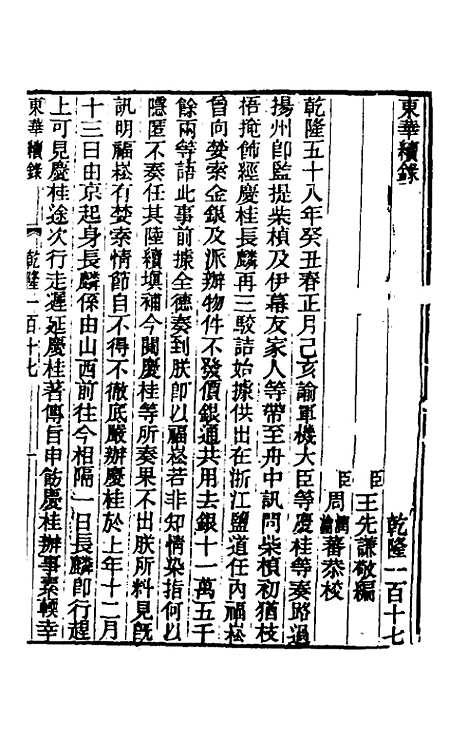 東華續錄
乾隆一百十七
臣王先謙敬編
臣周潤蕃周瀹蕃恭校
乾隆五十八年癸丑春正月己亥諭軍機大臣等慶桂等奏路過
揚州卽監提柴楨及伊幕友家人等帶至舟中訊問柴楨初猶枝
梧掩飾經慶桂長麟再三駁詰始據供出在浙江鹽道任內福崧
曾向婪索金銀及派辦物件不發價銀通共用去銀十一萬五千
餘兩等語此事前據全德奏到朕卽以福崧若非知情染指何以
隱匿不奏任其陸續塡補今閱慶桂等所奏果不出朕所料見旣
訊明福崧有婪索情節自不得不徹底嚴辦慶桂於上年十二月
十三日由京起身長麟係由山西前往今相隔一日長麟卽行趕
上可見慶桂途次行走遲延慶桂著傳旨申飭慶桂辦事素輭幸
東華續錄
乾隆一百十七
一